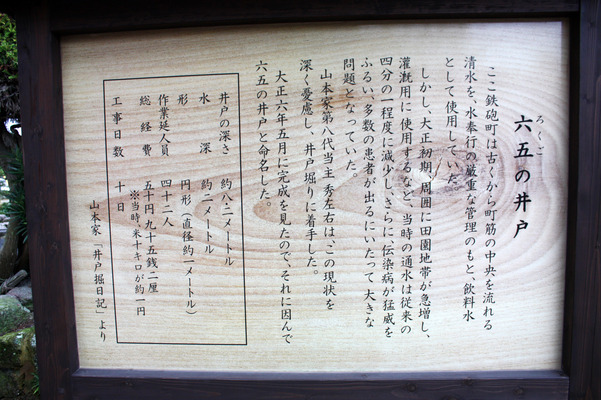 ろくご
六五の井戸
ここ鉄砲町は古くから町筋の中央を流れる
清水を、水奉行の厳重な管理のもと、飲料水
として使用していた。
しかし、大正初期、周囲に田園地帯が急増し、
灌漑用に使用するなど、当時の通水は従来の
四分の一程度に減少し、さらに伝染病が猛威を
ふるい、多数の患者が出るにいたって大きな
問題となっていた。
山本家第八代当主秀左右は、この現状を
深く憂慮し、井戸堀りに着手した。
大正六年五月に完成を見たので、それに因んで
六五の井戸と命名した。
井戸の深さ 約八・二メートル
水深 約二メートル
形 円形(直径約一メートル)
作業延人員 四十二人
総経費 五十円九十五銭二厘
※当時米十キロが約一円
工事日数 十日
山本家「井戸掘日記」より